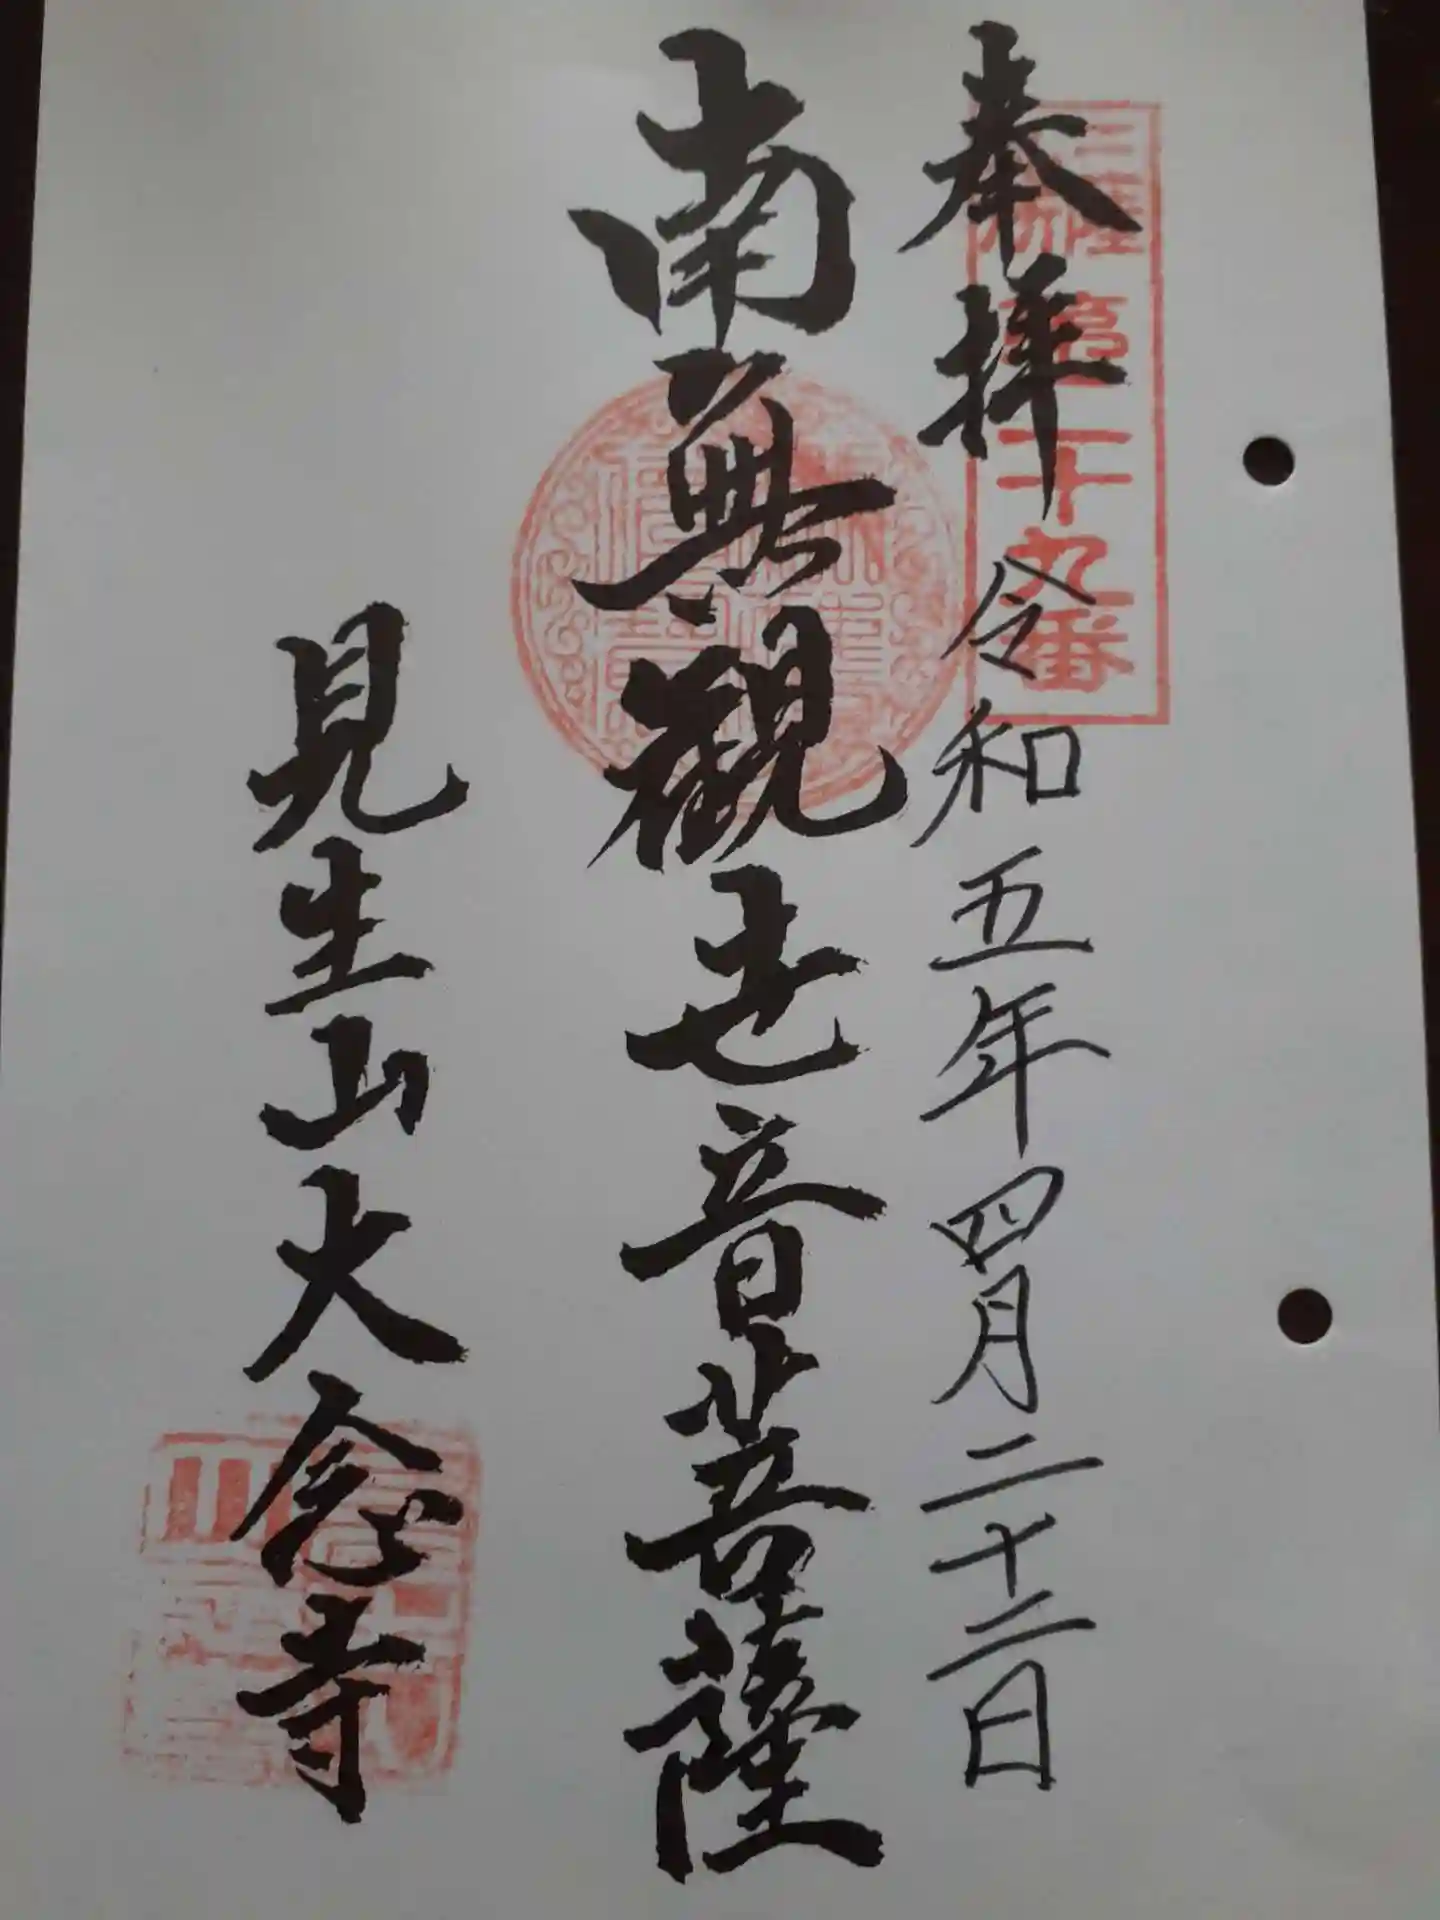 奉拝
三陸
第二十九番
令和五年四月二十二日
南無観世音菩薩
見生山大念寺